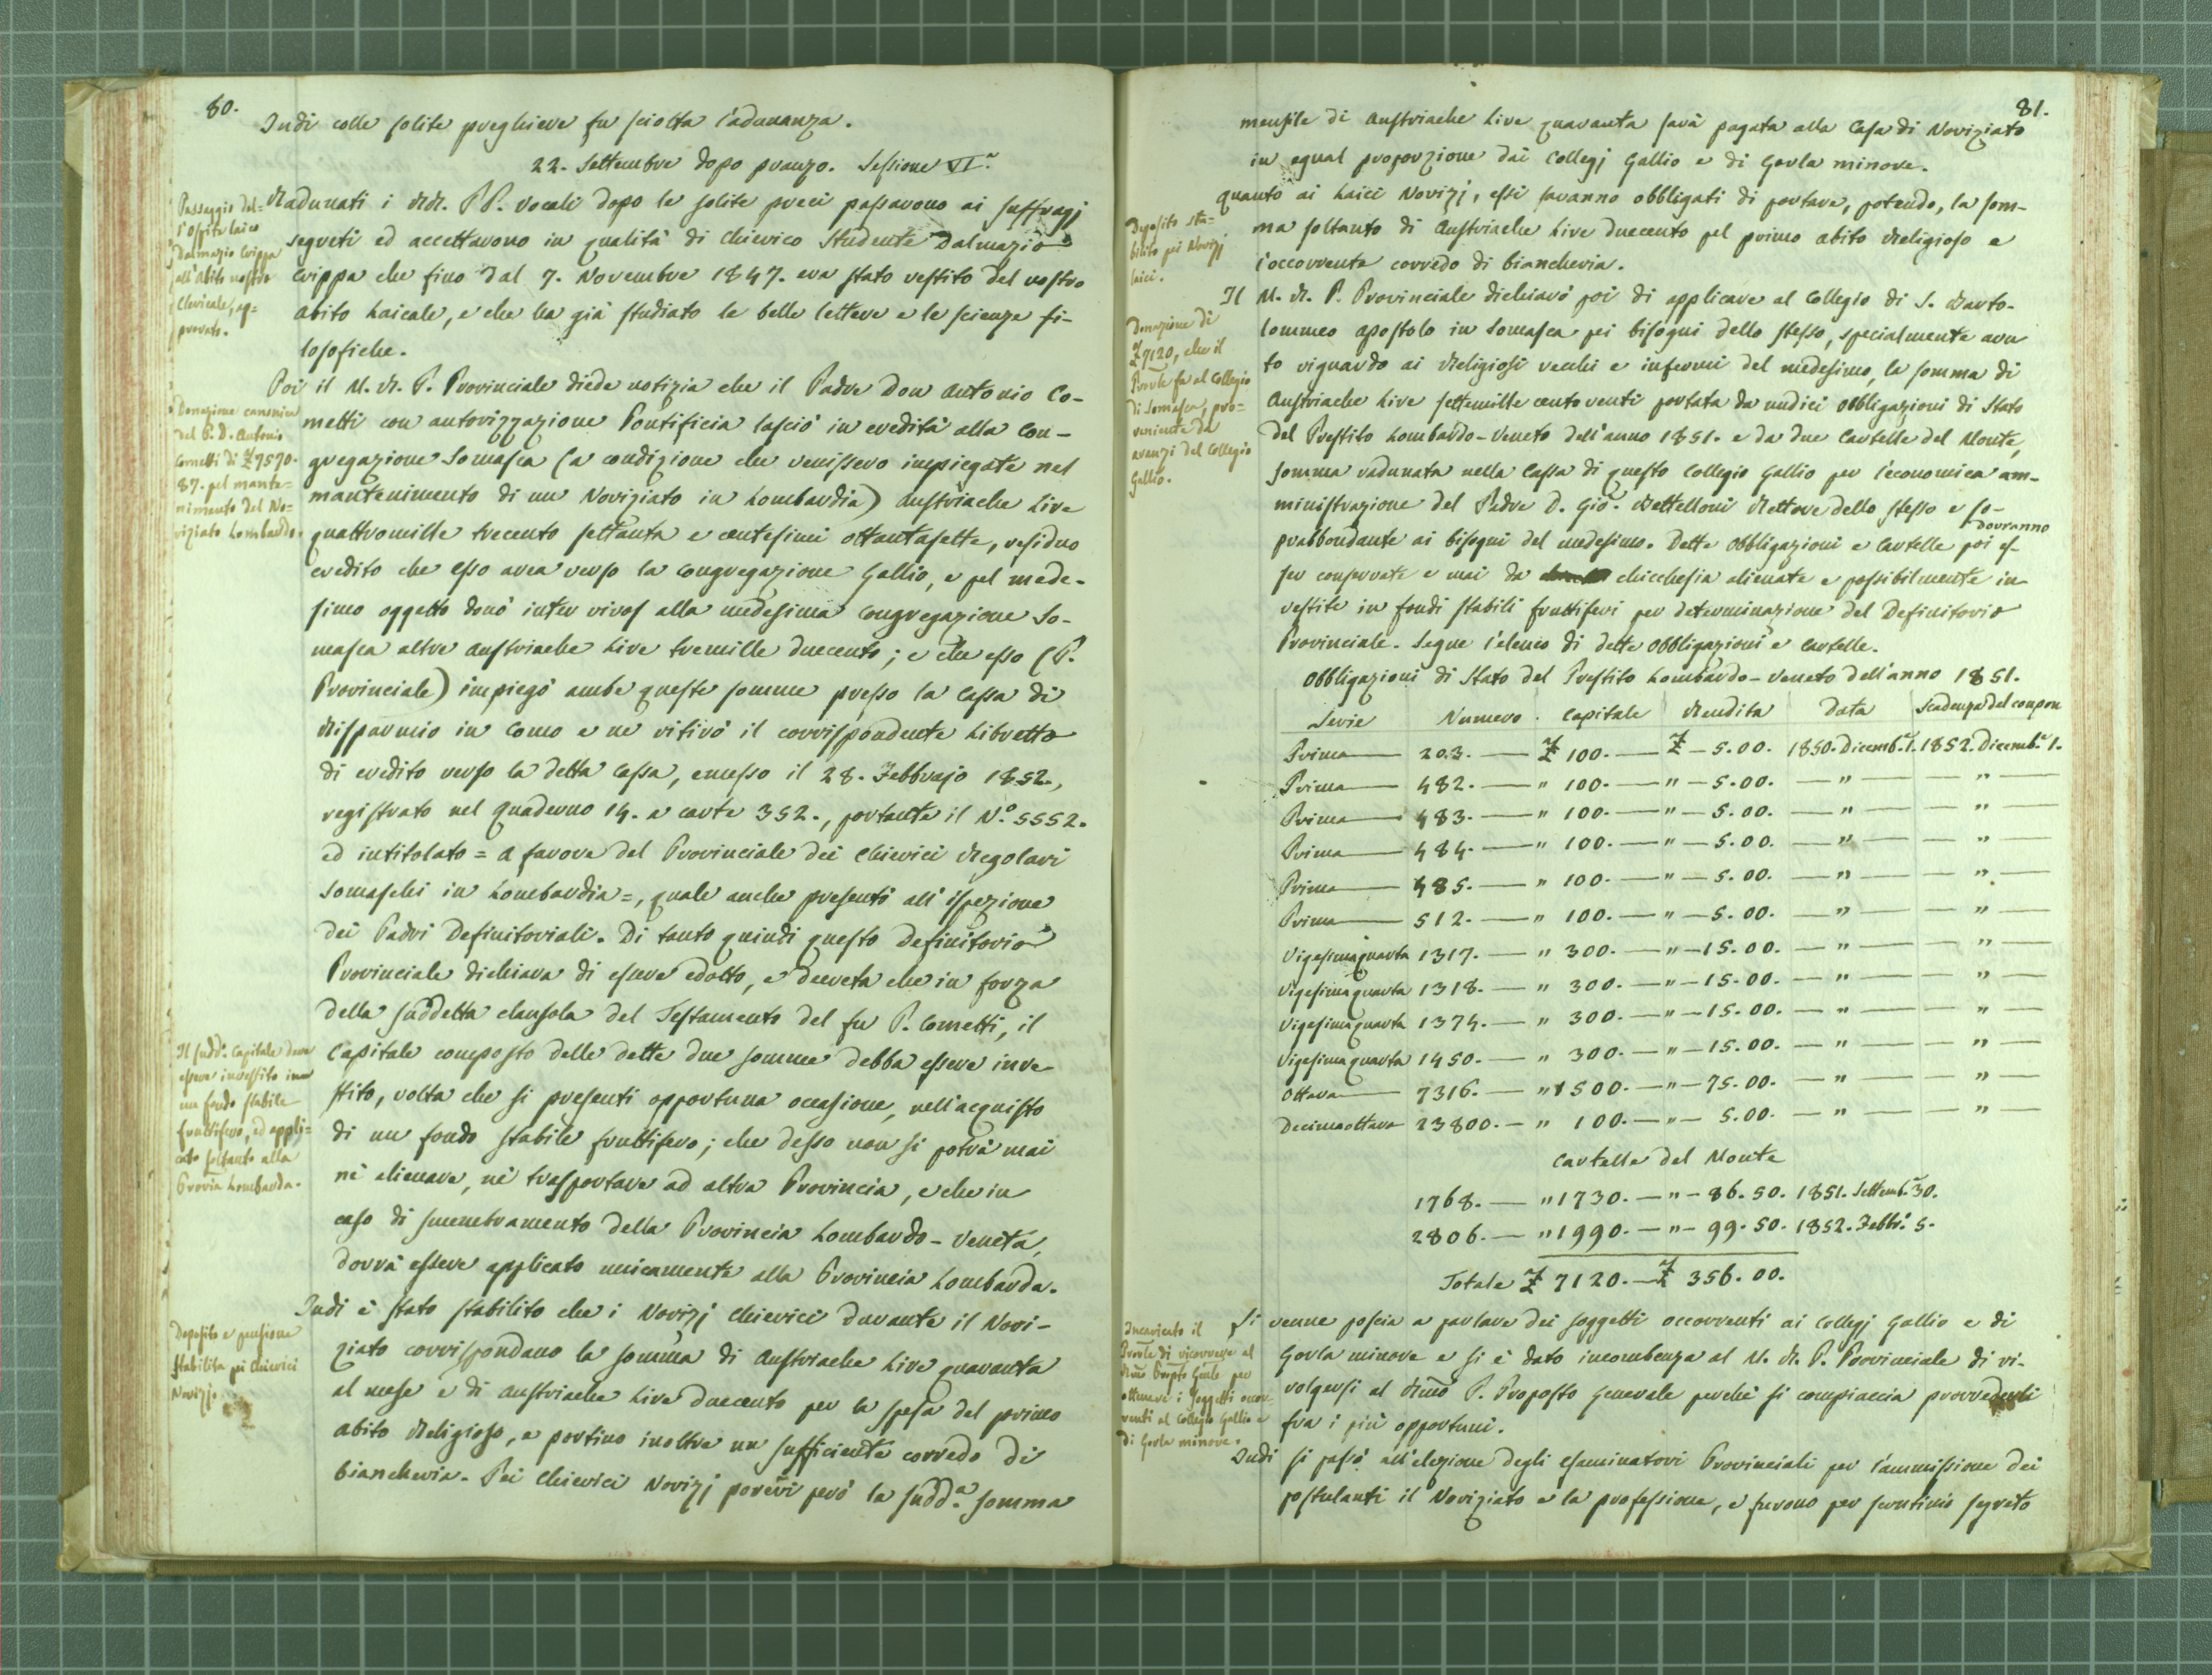 80.
Indi colle solite preghiere fu sciolta l'adunanza.
22. Settembre dopo pranzo. Sessione VI.ª
Passaggio del=
l'Ospite laico
Dalmazio Crippa
all'abito nostro
Clericale, ap=
provato.
Radunati i RR. PP. Vocali dopo le solite preci passarono ai suffragj
segreti ed accettarono in qualità di Chierico Studente Dalmazio
Crippa che fino dal 7. Novembre 1847. era stato vestito del nostro
abito Laicale, e che ha già studiato le belle lettere e le scienze fi-
losofiche.
Donazione canonica
del P. D. Antonio
Cometti di £ 7570.
87. pel mante=
nimento del No=
viziato Lombardo.
Poi il M. R. P. Provinciale diede notizia che il Padre Don Antonio Co-
metti con autorizzazione Pontificia lasciò in eredità alla Con-
gregazione Somasca (a condizione che venissero impiegate nel
mantenimento di un Noviziato in Lombardia) Austriache Lire
quattromille trecento settanta e centesimi ottantasette, residuo
credito che esso avea verso la Congregazione Gallio, e pel mede-
simo oggetto donò inter vivos alla medesima Congregazione So-
masca altre Austriache Lire tremille duecento; e che esso (P.
Provinciale) impiegò ambe queste somme presso la Cassa di
Risparmio in Como e ne ritirò il corrispondente Libretto
di credito verso la detta Cassa, emesso il 28. Febbrajo 1852.,
registrato nel Quaderno 14. a carte 352., portante il N.° 5552.
ed intitolato = A favore del Provinciale dei Chierici Regolari
Somaschi in Lombardia =, quale anche presentò all'ispezione
dei Padri Definitoriali. Di tanto quindi questo Definitorio
Provinciale dichiara di essere edotto, e decreta che in forza
della suddetta clausola del Testamento del fu P. Cometti, il
Il sudd.° Capitale deve
essere investito in
un fondo stabile
fruttifero, ed appli=
cato soltanto alla
Provia Lombarda.
Capitale composto delle dette due somme debba essere inve-
stito, volta che si presenti opportuna occasione, nell'acquisto
di un fondo stabile fruttifero; che desso non si potrà mai
nè alienare, nè trasportare ad altra Provincia, e che in
caso di smembramento della Provincia Lombardo-Veneta,
dovrà essere applicato unicamente alla Provincia Lombarda.
Deposito e pensione
stabilita pei Chierici
Novizj.
Indi è stato stabilito che i Novizj Chierici durante il Novi-
ziato corrispondano la somma di Austriache Lire quaranta
al mese e di Austriache Lire duecento per la spesa del primo
abito Religioso, e portino inoltre un sufficiente corredo di
biancheria. Pei Chierici Novizj poveri però la sudd.ª somma
81.
mensile di Austriache Lire quaranta sarà pagata alla Casa di Noviziato
in egual proporzione dai Collegj Gallio e di Gorla minore.
Deposito sta=
bilito pei Novizj
laici.
Quanto ai Laici Novizj, essi saranno obbligati di portare, potendo, la som-
ma soltanto di Austriache Lire duecento pel primo abito Religioso e
l'occorrente corredo di biancheria.
Donazione di
£ 7120, che il
Provle fa al Collegio
di Somasca, pro=
veniente da
avanzi del Collegio
Gallio.
Il M. R. P. Provinciale dichiarò poi di applicare al Collegio di S. Barto-
lommeo Apostolo in Somasca pei bisogni dello stesso, specialmente avu
to riguardo ai Religiosi vecchi e infermi del medesimo, la somma di
Austriache Lire settemille cento venti portata da undici Obbligazioni di Stato
del Prestito Lombardo-Veneto dell'anno 1851. e da due Cartelle del Monte,
somma radunata nella Cassa di questo Collegio Gallio per l'economica am-
ministrazione del Padre D. Gio. Bettelloni Rettore dello stesso e so-
prabbondante ai bisogni del medesimo. Dette Obbligazioni e Cartelle poi dovranno es-
ser conservate e mai da chicchesia alienate e possibilmente in
vestite in fondi stabili fruttiferi per determinazione del Definitorio
Provinciale. Segue l'elenco di dette Obbligazioni e Cartelle.
Obbligazioni di Stato del Prestito Lombardo-Veneto dell'anno 1851.
Serie Numero. Capitale Rendita Data Scadenza del coupon
Prima — 203. — £ 100. — £ — 5.00. 1850. Dicemb.e 1. 1852. Dicemb.e 1.
Prima — 482. — " 100. — " — 5.00. — " — — " —
Prima — 483. — " 100. — " — 5.00. — " — — " —
Prima — 484. — " 100. — " — 5.00. — " — — " —
Prima — 485. — " 100. — " — 5.00. — " — — " —
Prima — 512. — " 100. — " — 5.00. — " — — " —
Vigesimaquarta 1317. — " 300. — " — 15.00. — " — — " —
Vigesimaquarta 1318. — " 300. — " — 15.00. — " — — " —
Vigesimaquarta 1374. — " 300. — " — 15.00. — " — — " —
Vigesimaquarta 1450. — " 300. — " — 15.00. — " — — " —
Ottava — 7316. — " 1500. — " — 75.00. — " — — " —
Decimaottava 23800. — " 100. — " — 5.00. — " — — " —
Cartelle del Monte
1768. — " 1730. — " — 86.50. 1851. Settemb.e 30.
2806. — " 1990. — " — 99.50. 1852. Febbr.° 5.
Totale £ 7120. — £ 356.00.
Incaricato il
Provle di ricorrere al
Rmo Prepto Gnle per
ottenere i Soggetti occor
renti al Collegio Gallio e
di Gorla minore.
Si venne poscia a parlare dei soggetti occorrenti ai Collegj Gallio e di
Gorla minore e si è dato incombenza al M. R. P. Provinciale di ri-
volgersi al Rmo P. Preposto Generale perchè si compiaccia provvederli
fra i più opportuni.
Indi si passò all'elezione degli esaminatori Provinciali per l'ammissione dei
postulanti il Noviziato e la professione, e furono per scrutinio segreto